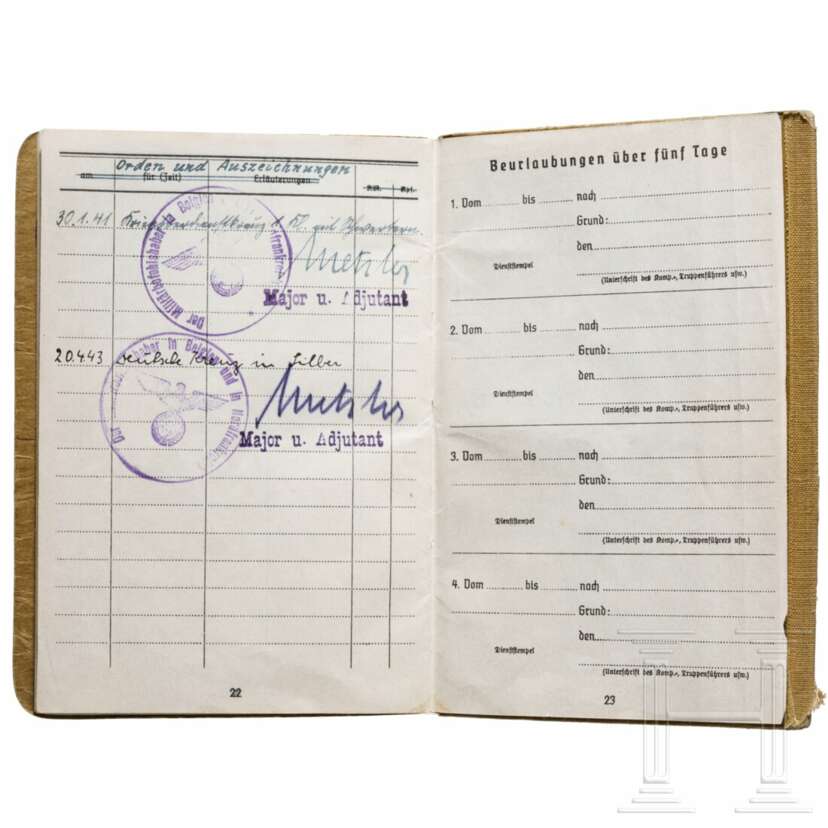 Orden und Auszeichnungen
am für (Zeit) Erläuterungen
30.1.41 Kriegsverdienstkreuz 1. Kl. mit Schwertern.
Der Militärbefehlshaber in Belgien
Metzler
Major u. Adjutant
20.4.43 Deutsche Kreuz in Silber
Der in Belgien und in Nordfrankr.
Metzler
Major u. Adjutant
22
Beurlaubungen über fünf Tage
1. Vom bis nach
Grund:
den
Dienststempel
(Unterschrift des Komp.-, Truppenführers usw.)
2. Vom bis nach
Grund:
den
Dienststempel
(Unterschrift des Komp.-, Truppenführers usw.)
3. Vom bis nach
Grund:
den
Dienststempel
(Unterschrift des Komp.-, Truppenführers usw.)
4. Vom bis nach
Grund:
den
Dienststempel
(Unterschrift des Komp.-, Truppenführers usw.)
23